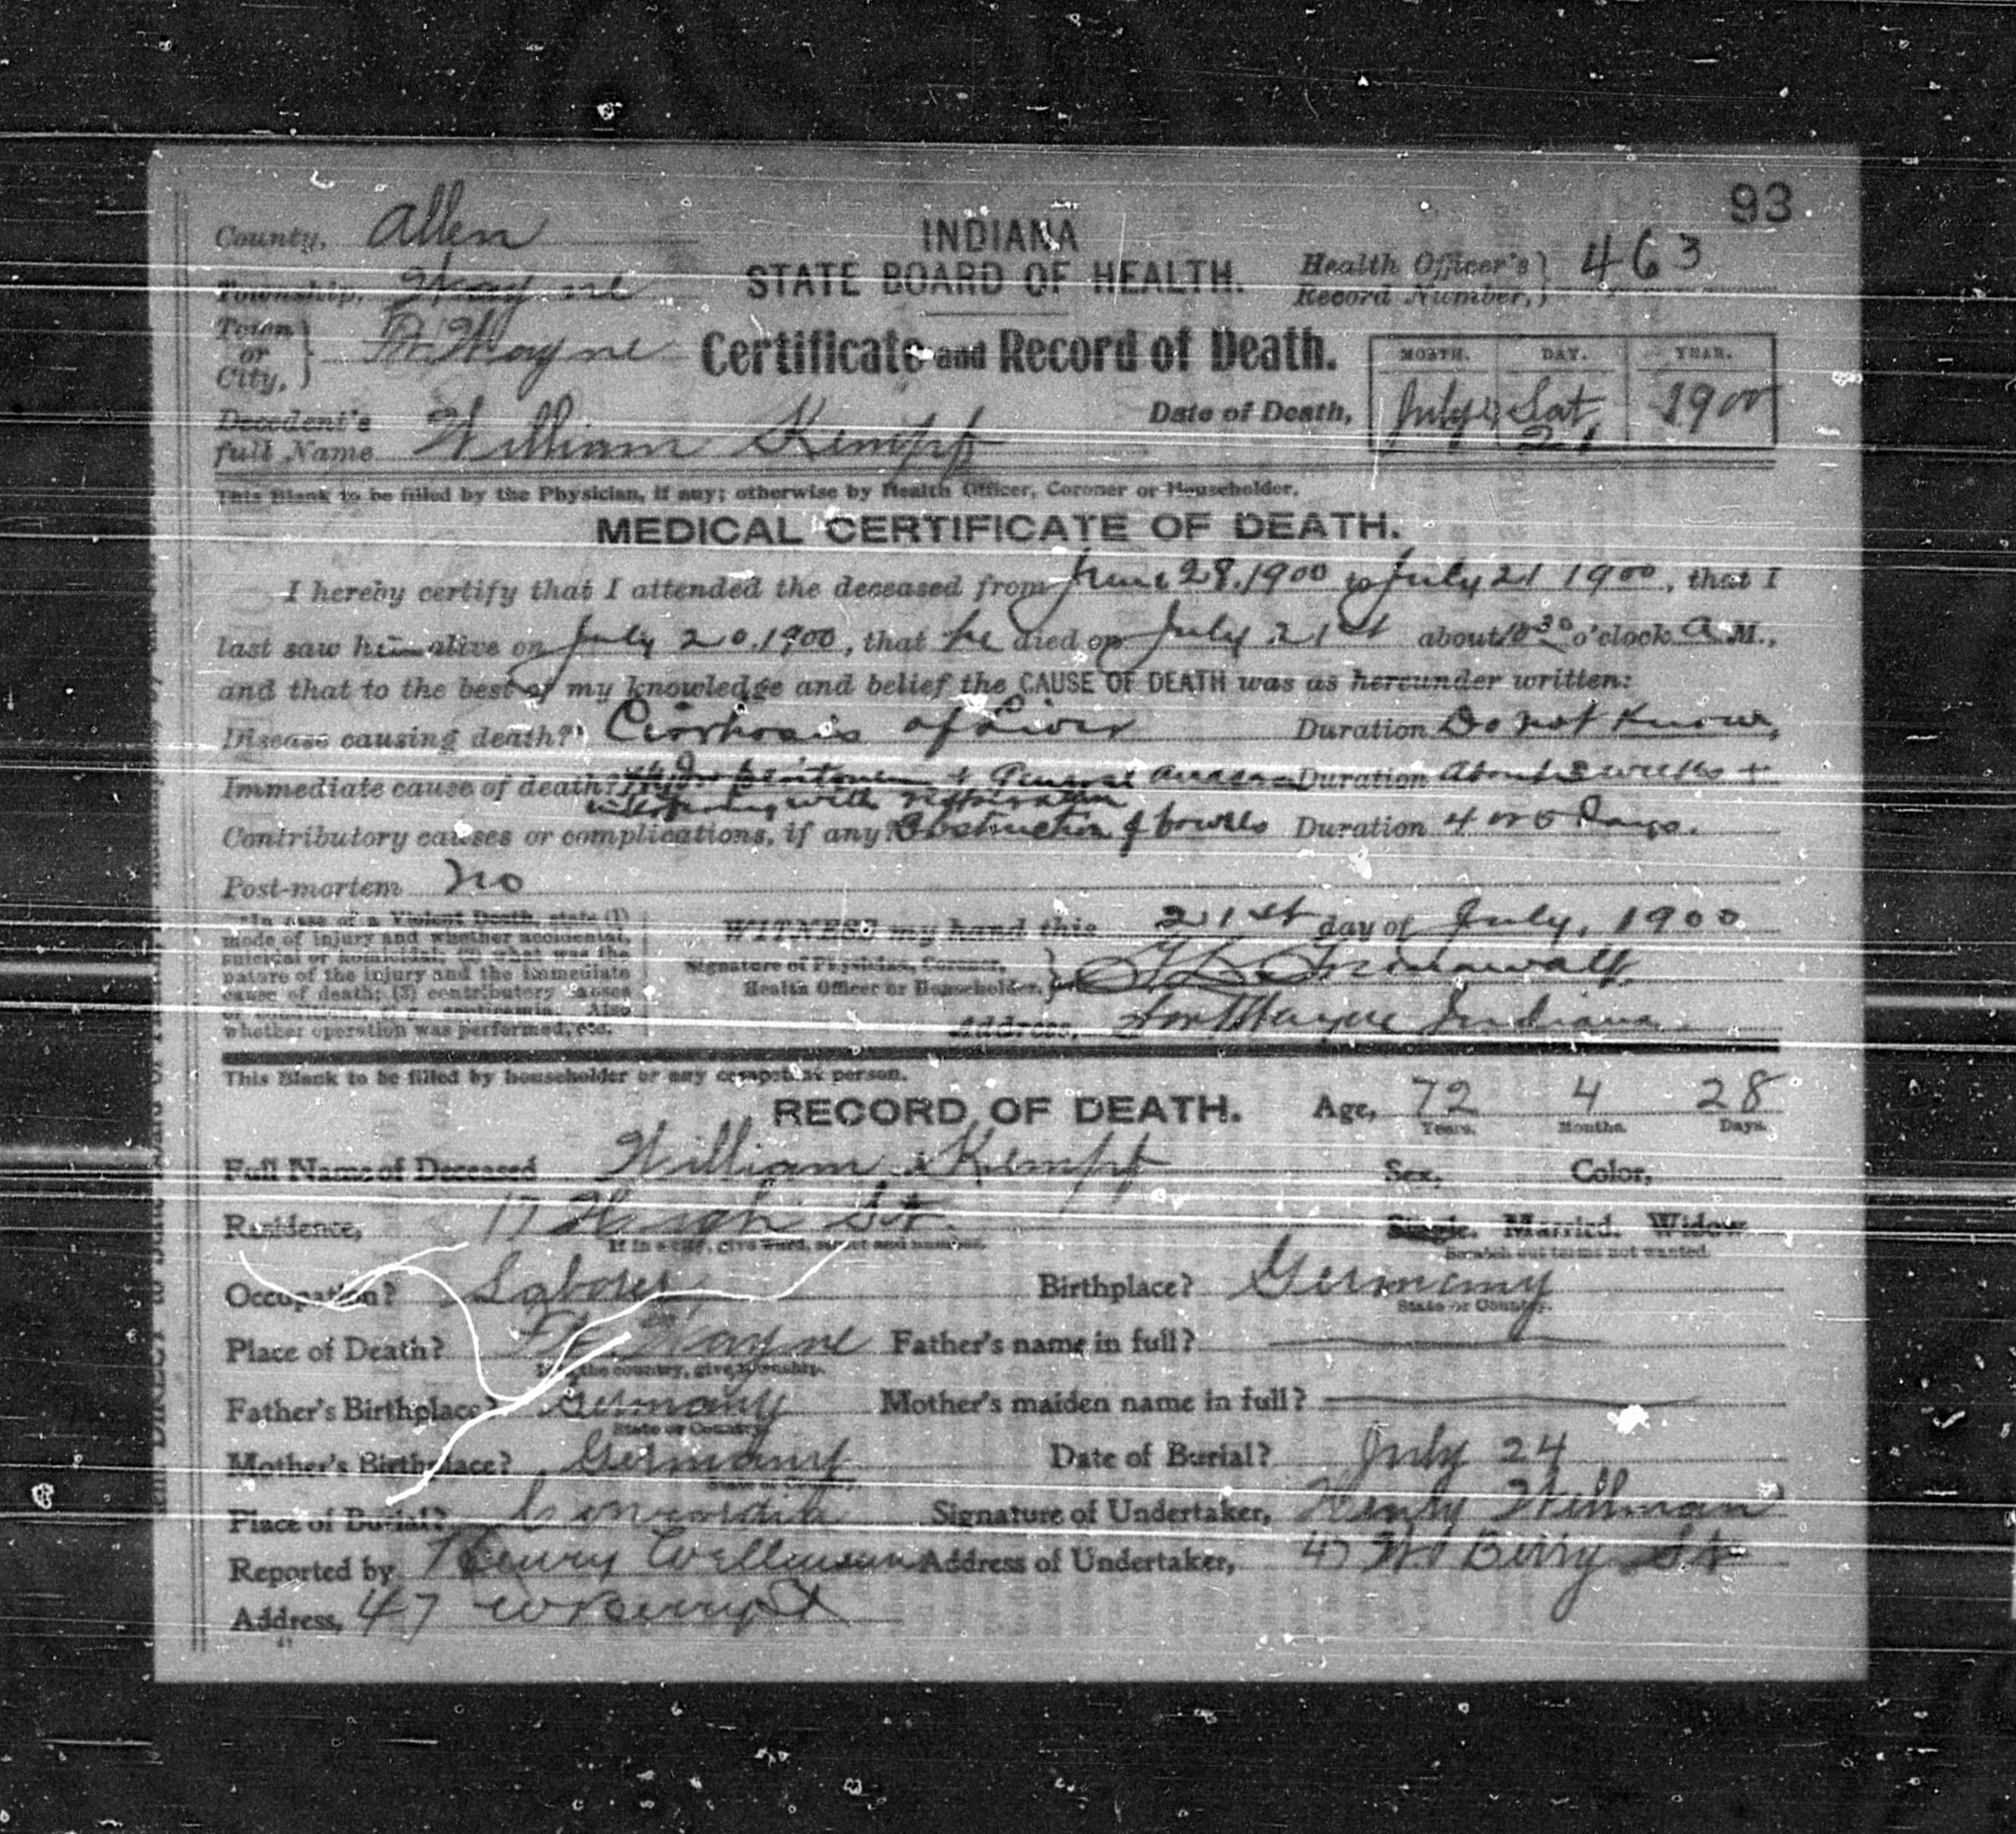 93
County, Allen
INDIANA
STATE BOARD OF HEALTH.
Health Officer's Record Number, 463
Township, Wayne
Town or City, Ft. Wayne
Certificate and Record of Death.
MONTH. DAY. YEAR.
Date of Death, July Sat 21 1900
Decedent's full Name William Kempf
This Blank to be filled by the Physician, if any; otherwise by Health Officer, Coroner or Householder.
MEDICAL CERTIFICATE OF DEATH.
I hereby certify that I attended the deceased from June 28, 1900 to July 21 1900, that I
last saw him alive on July 20, 1900, that he died on July 21st about 10 30 o'clock A M.,
and that to the best of my knowledge and belief the CAUSE OF DEATH was as hereunder written:
Disease causing death? Cirrhosis of Liver Duration Do not Know,
Immediate cause of death? & General Duration About weeks +
interfering with respiration
Contributory causes or complications, if any? Obstruction of bowels Duration 4 or 5 Days.
Post-mortem no
In case of a Violent Death, state (1)
mode of injury and whether accidental,
suicidal or homicidal; (2) what was the
nature of the injury and the immediate
cause of death; (3) contributory causes
Also
whether operation was performed, etc.
WITNESS my hand this 21st day of July, 1900
Signature of Physician, Coroner,
Health Officer or Householder,
Address, Fort Wayne Indiana.
This Blank to be filled by householder or any competent person.
RECORD OF DEATH. Age, 72 4 28
Years. Months. Days.
Full Name of Deceased William Kempf Sex, Color,
Residence, 17 Hugh St. Single. Married. Widow
If in a city, give ward, street and number. Scratch out terms not wanted.
Occupation? Laborer Birthplace? Germany
State or Country.
Place of Death? Ft. Wayne Father's name in full?
If in the country, give township.
Father's Birthplace? Germany Mother's maiden name in full?
State or Country
Mother's Birthplace? Germany Date of Burial? July 24
State or Country.
Place of Burial? Concordia Signature of Undertaker, Henry Wellman
Reported by Henry Wellman Address of Undertaker, 47 W Berry St
Address, 47 W Berry St